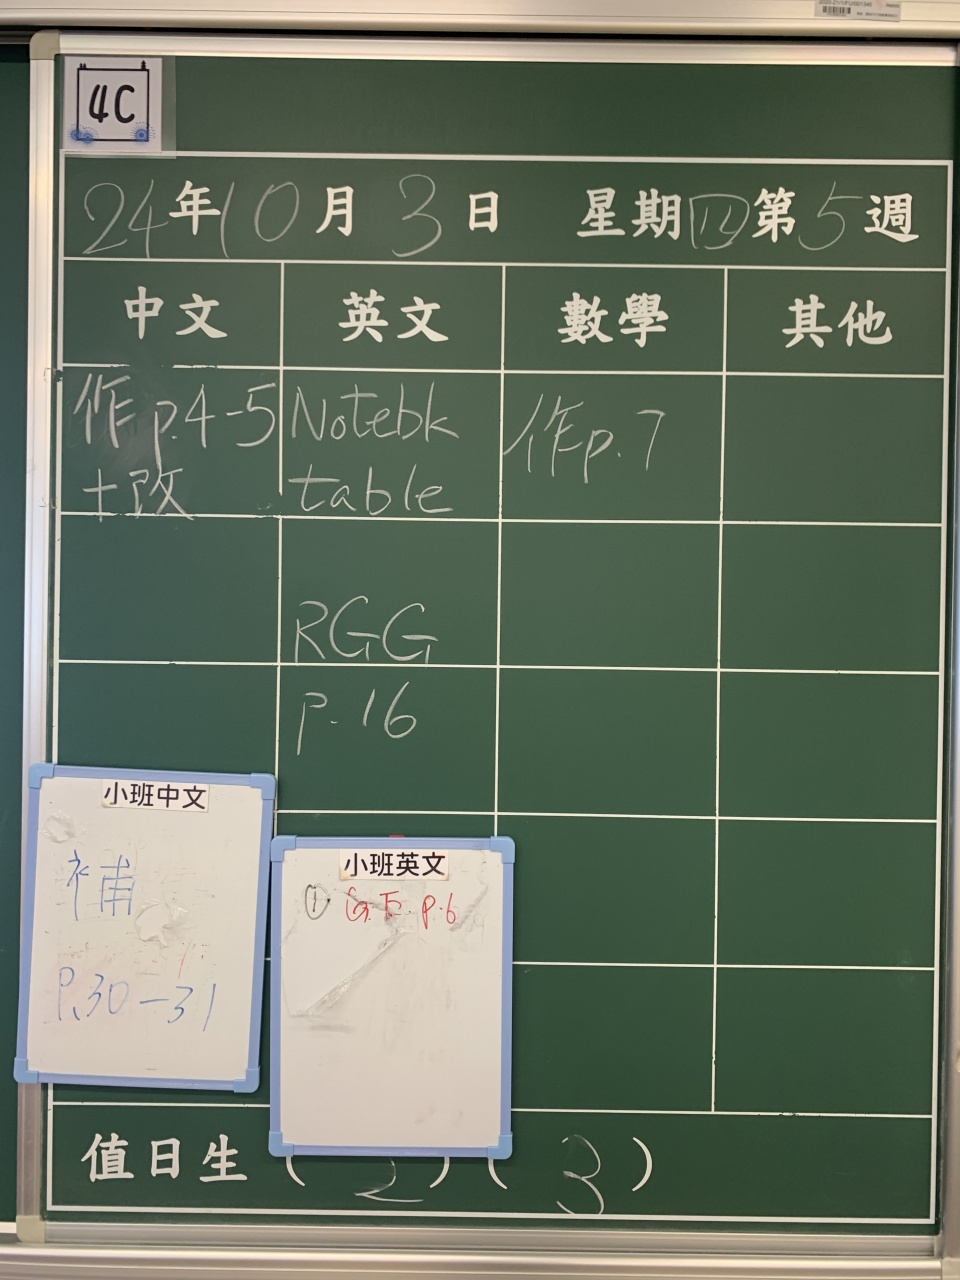 4C
24年10月3日 星期四第5週
中文 英文 數學 其他
作p.4-5 Notebk 作p.7
+改 table
RGG
p.16
小班中文
補
P.30-31
小班英文
① p.6
值日生(2)(3)